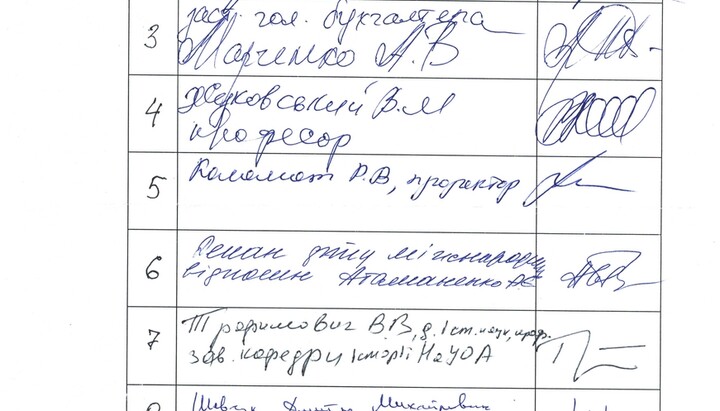 3
заст. гол. бухгалтера
Марченко А.В
4
Жуковський В.М
професор
5
Каламаж Р.В, проректор
6
Декан ф-ту міжнародних
відносин Атаманенко А.Є
7
Трофимович В.В, д. іст. наук, проф.
зав. кафедри історії НаУОА
8
Шевчук Дмитро Михайлович